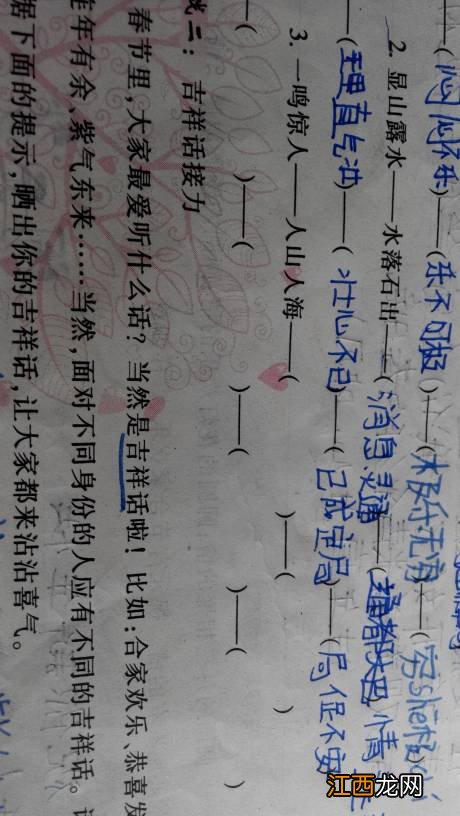 ——(闷闷不乐)——(乐不可极)——(极乐无穷)——(穷shē极
2. 显山露水——水落石出——(消息灵通——(通都大邑 情
——(理直气壮)——(壮心不已)——(已成定局)——(局促不安
3. 一鸣惊人——人山人海——( )——( )
——( )——( )——( )——( )
戏二：吉祥话接力
春节里,大家最爱听什么话？当然是吉祥话啦！比如:合家欢乐、恭喜发
年年有余、紫气东来……当然,面对不同身份的人应有不同的吉祥话。
据下面的提示,晒出你的吉祥话,让大家都来沾沾喜气。
西西龙网